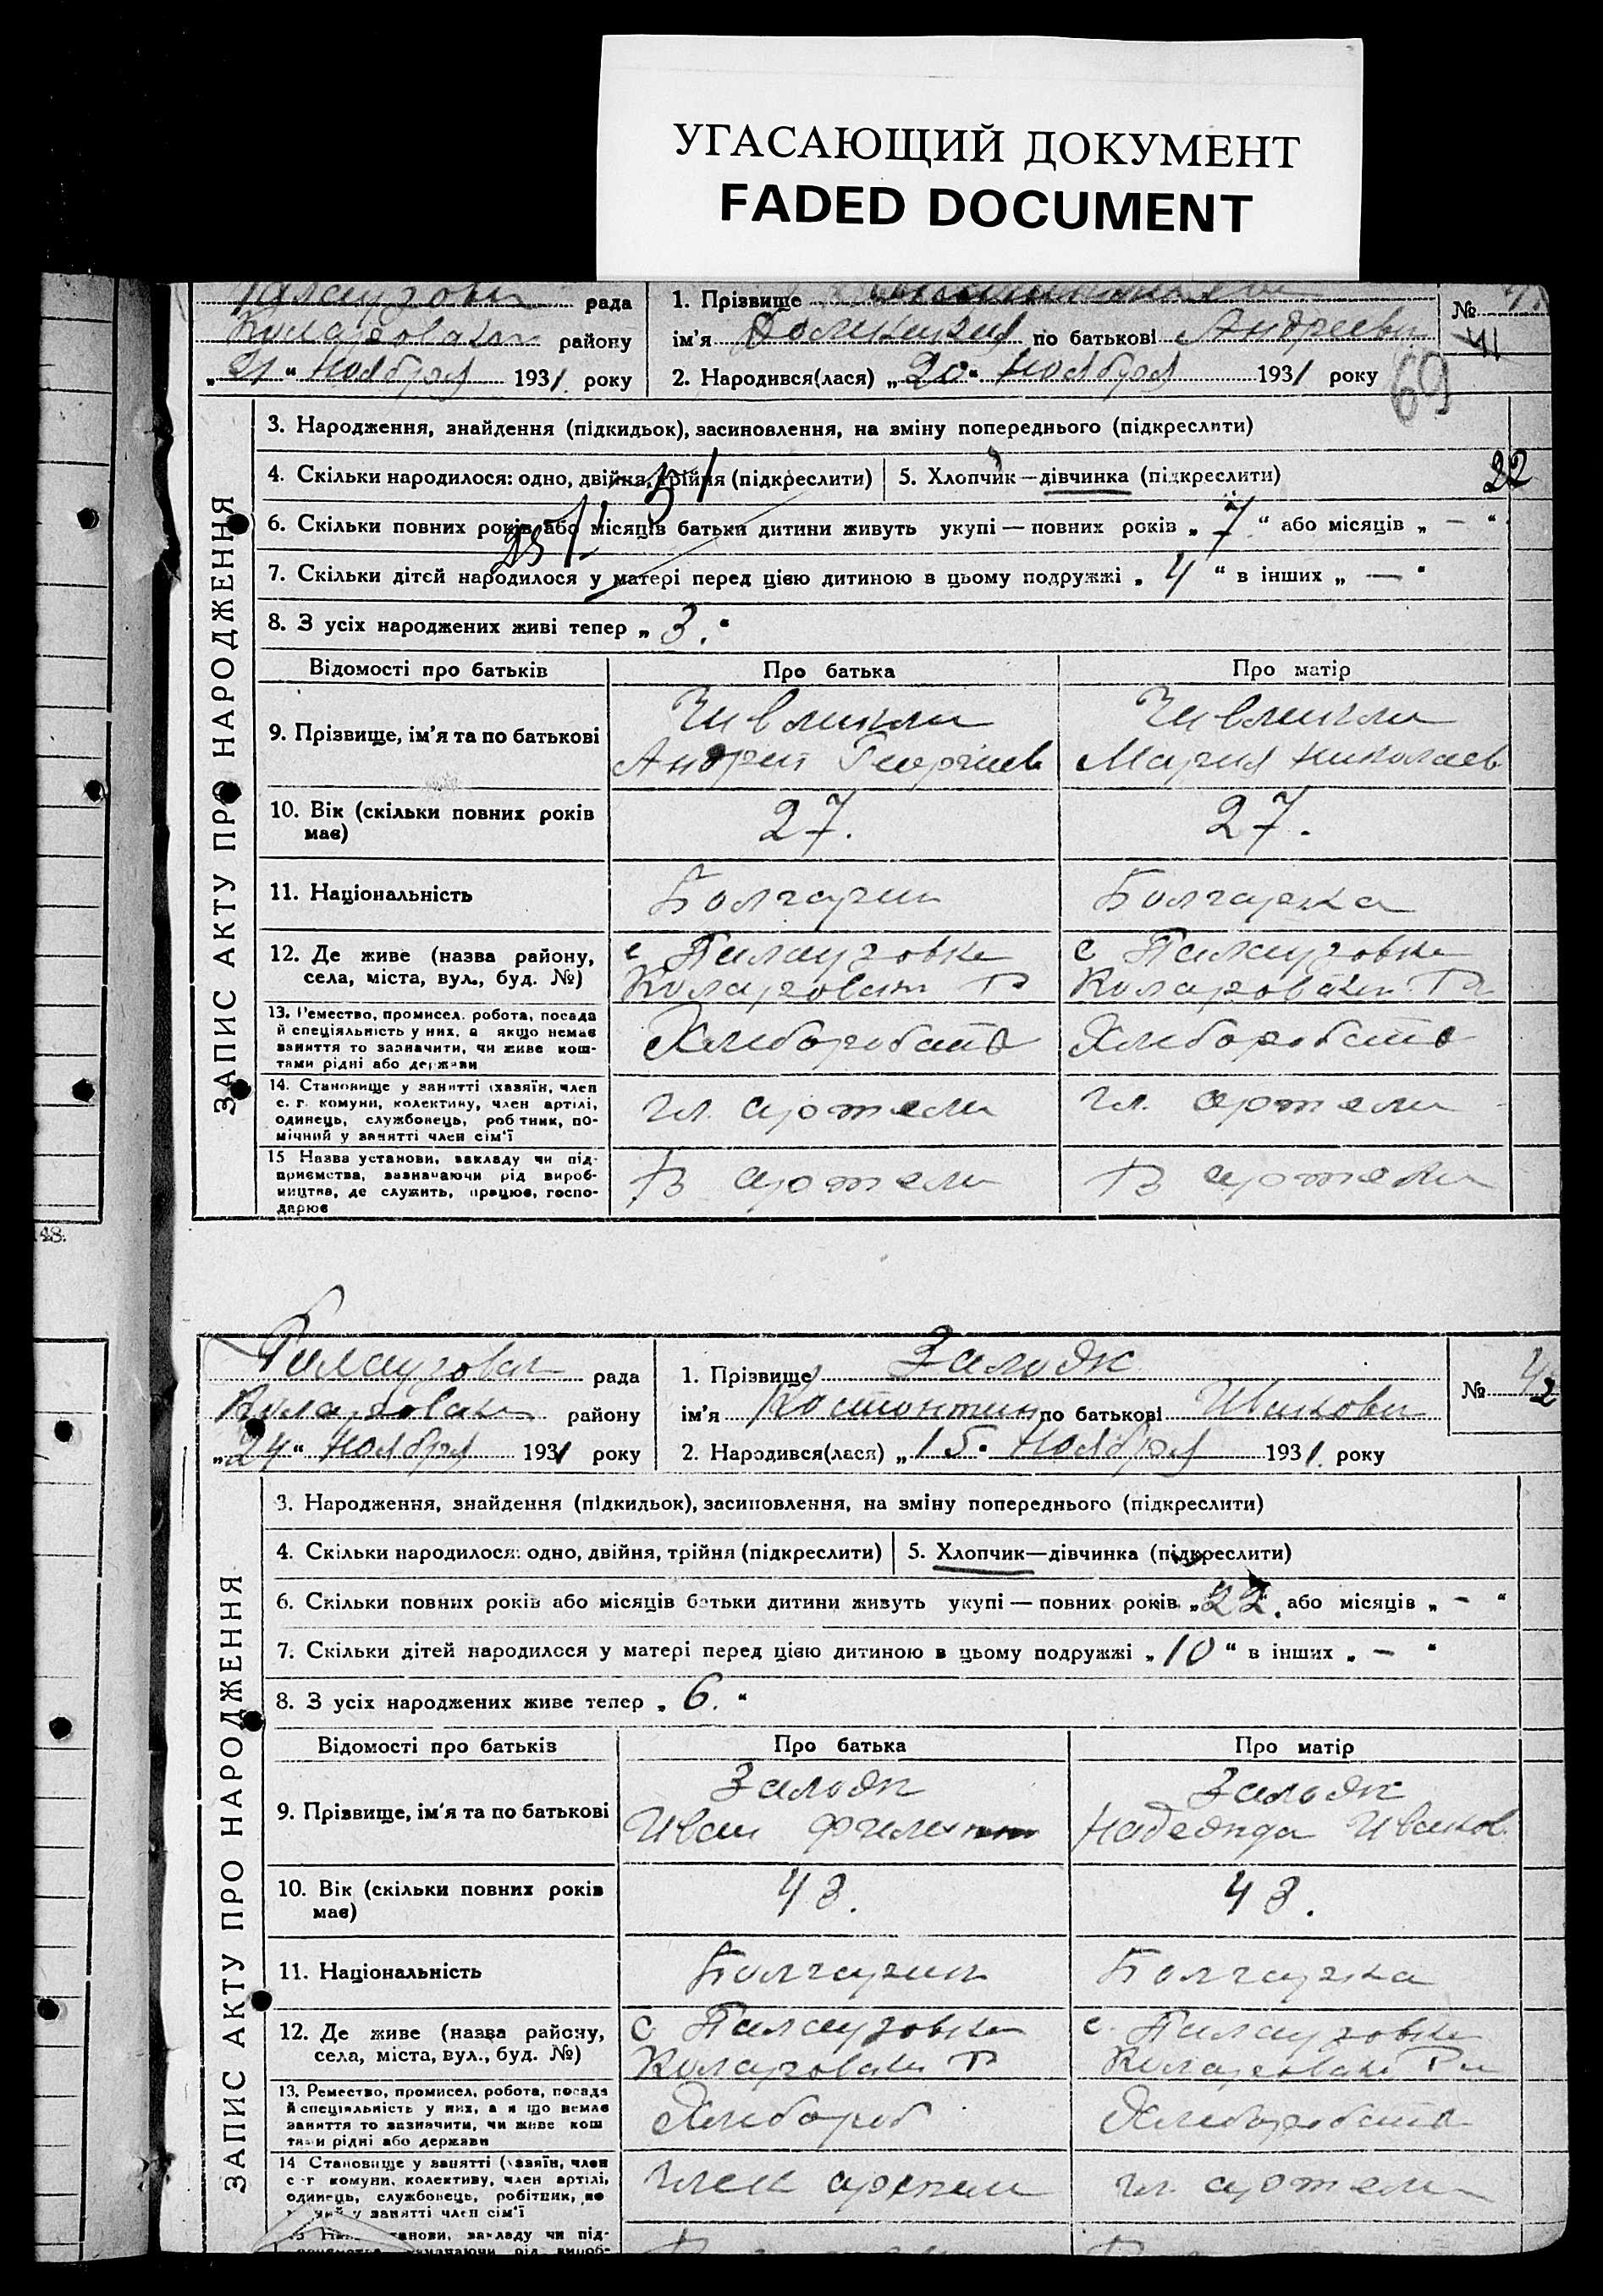 УГАСАЮЩИЙ ДОКУМЕНТ
FADED DOCUMENT
рада
району
„21“ Ноября 1931 року
1. Прізвище
ім'я по батькові Андреевн
2. Народився(лася) „20“ Ноября 1931 року
№
41
69
ЗАПИС АКТУ ПРО НАРОДЖЕННЯ
3. Народження, знайдення (підкидьок), засиновлення, на зміну попереднього (підкреслити)
4. Скільки народилося: одно, двійня, трійня (підкреслити)
5. Хлопчик—дівчинка (підкреслити)
22
6. Скільки повних років або місяців батьки дитини живуть укупі — повних років „7“ або місяців „—“
7. Скільки дітей народилося у матері перед цією дитиною в цьому подружжі „4“ в інших „—“
8. З усіх народжених живі тепер „3.“
Відомості про батьків Про батька Про матір
9. Прізвище, ім'я та по батькові
Чивликли
Андрей Георгиев
Чивликли
Мария Николаев
10. Вік (скільки повних років має)
27. 27.
11. Національність
Болгарин Болгарка
12. Де живе (назва району, села, міста, вул., буд. №)
с Палаузовка
Коларовский Р
с Палаузовка
Коларовский Р
13. Ремество, промисел. робота, посада
й спеціяльність у них, а якщо немає
заняття то зазначити, чи живе кош-
тами рідні або держави
Хлиборобство Хлиборобство
14. Становище у занятті (хазяїн, член
с. г. комуни, колективу, член артілі,
одинець, службовець, робітник, по-
мічний у занятті член сім'ї
Чл. артели Чл. артели
15 Назва установи, закладу чи під-
приємства, зазначаючи рід вироб-
ництва, де служить, працює, госпо-
дарює
В артели В артели
48.
рада
району
„24“ Ноября 1931 року
1. Прізвище Залодк
ім'я Костонтин по батькові Иванови
2. Народився(лася) „15“ Ноября 1931. року
№ 42
ЗАПИС АКТУ ПРО НАРОДЖЕННЯ
3. Народження, знайдення (підкидьок), засиновлення, на зміну попереднього (підкреслити)
4. Скільки народилося: одно, двійня, трійня (підкреслити)
5. Хлопчик—дівчинка (підкреслити)
6. Скільки повних років або місяців батьки дитини живуть укупі — повних років „22.“ або місяців „-“
7. Скільки дітей народилося у матері перед цією дитиною в цьому подружжі „10“ в інших „—“
8. З усіх народжених живе тепер „6.“
Відомості про батьків Про батька Про матір
9. Прізвище, ім'я та по батькові
Залодк
Иван
Залодк
Надежда Иванов.
10. Вік (скільки повних років має)
43. 43.
11. Національність
Болгарин Болгарка
12. Де живе (назва району, села, міста, вул., буд. №)
с Палаузовка
Коларовский Р
с. Палаузовка
Коларовский
13. Ремество, промисел, робота, посада
й спеціяльність у них, а якщо немає
заняття то зазначити, чи живе кош
тами рідні або держави
Хлибороб Хлиборобство
14 Становище у занятті (хазяїн, член
с г комуни, колективу, член артілі,
одинець, службовець, робітник, по
у занятті член сім'ї
Член артели Чл. артели
установи, закладу чи під-